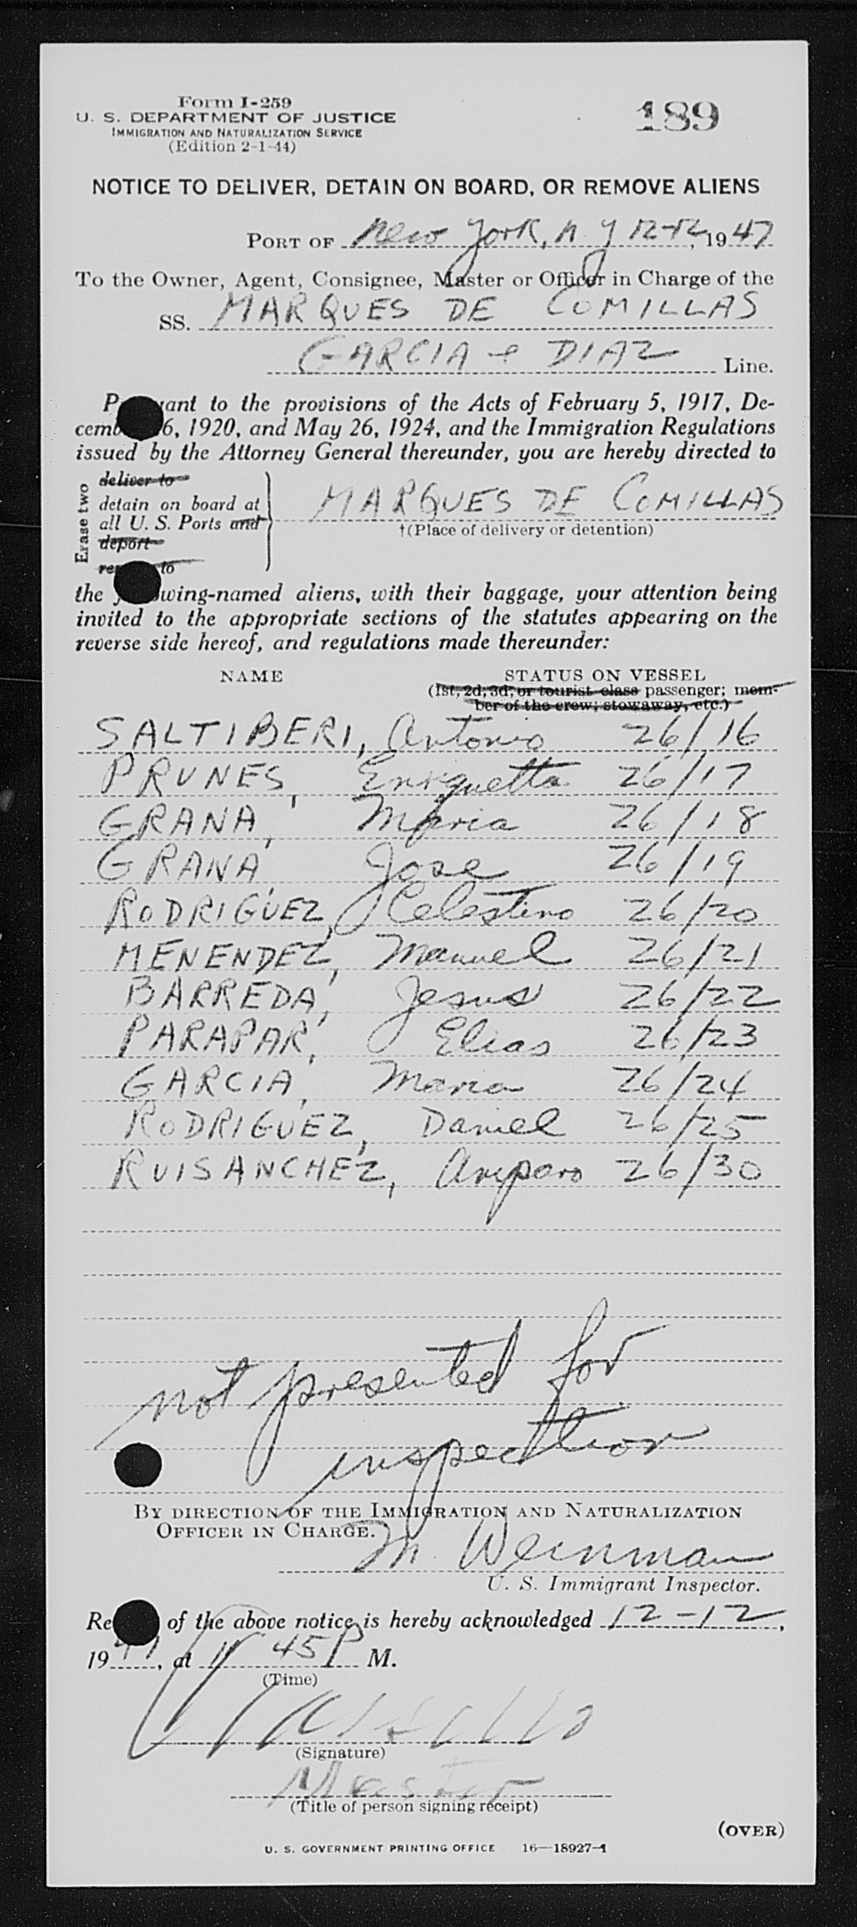 Form I-259
U. S. DEPARTMENT OF JUSTICE
IMMIGRATION AND NATURALIZATION SERVICE
(Edition 2-1-44)
189
NOTICE TO DELIVER, DETAIN ON BOARD, OR REMOVE ALIENS
PORT OF New York, N.Y 12-12, 1947
To the Owner, Agent, Consignee, Master or Officer in Charge of the
SS. MARQUES DE COMILLAS
GARCIA e DIAZ Line.
P ant to the provisions of the Acts of February 5, 1917, De-
cemb 6, 1920, and May 26, 1924, and the Immigration Regulations
issued by the Attorney General thereunder, you are hereby directed to
Erase two
deliver to
detain on board at
all U. S. Ports and
deport
re to
MARQUES DE COMILLAS
†(Place of delivery or detention)
the wing-named aliens, with their baggage, your attention being
invited to the appropriate sections of the statutes appearing on the
reverse side hereof, and regulations made thereunder:
NAME STATUS ON VESSEL
(1st, 2d, 3d, or tourist class passenger; mem-
ber of the crew; stowaway, etc.)
SALTIBERI, Antonio 26/16
PRUNES, Enriquetta 26/17
GRANA, Maria 26/18
GRANA, Jose 26/19
RODRIGUEZ, Celestino 26/20
MENENDEZ, Manuel 26/21
BARREDA, Jesus 26/22
PARAPAR, Elias 26/23
GARCIA, Maria 26/24
RODRIGUEZ, Daniel 26/25
RUISANCHEZ, Amparo 26/30
not presented for
inspection
BY DIRECTION OF THE IMMIGRATION AND NATURALIZATION
OFFICER IN CHARGE.
M. Weinman
U. S. Immigrant Inspector.
Re of the above notice is hereby acknowledged 12-12,
1947, at 45 P M.
(Time)
(Signature)
Master
(Title of person signing receipt)
(OVER)
U. S. GOVERNMENT PRINTING OFFICE 16—18927-1